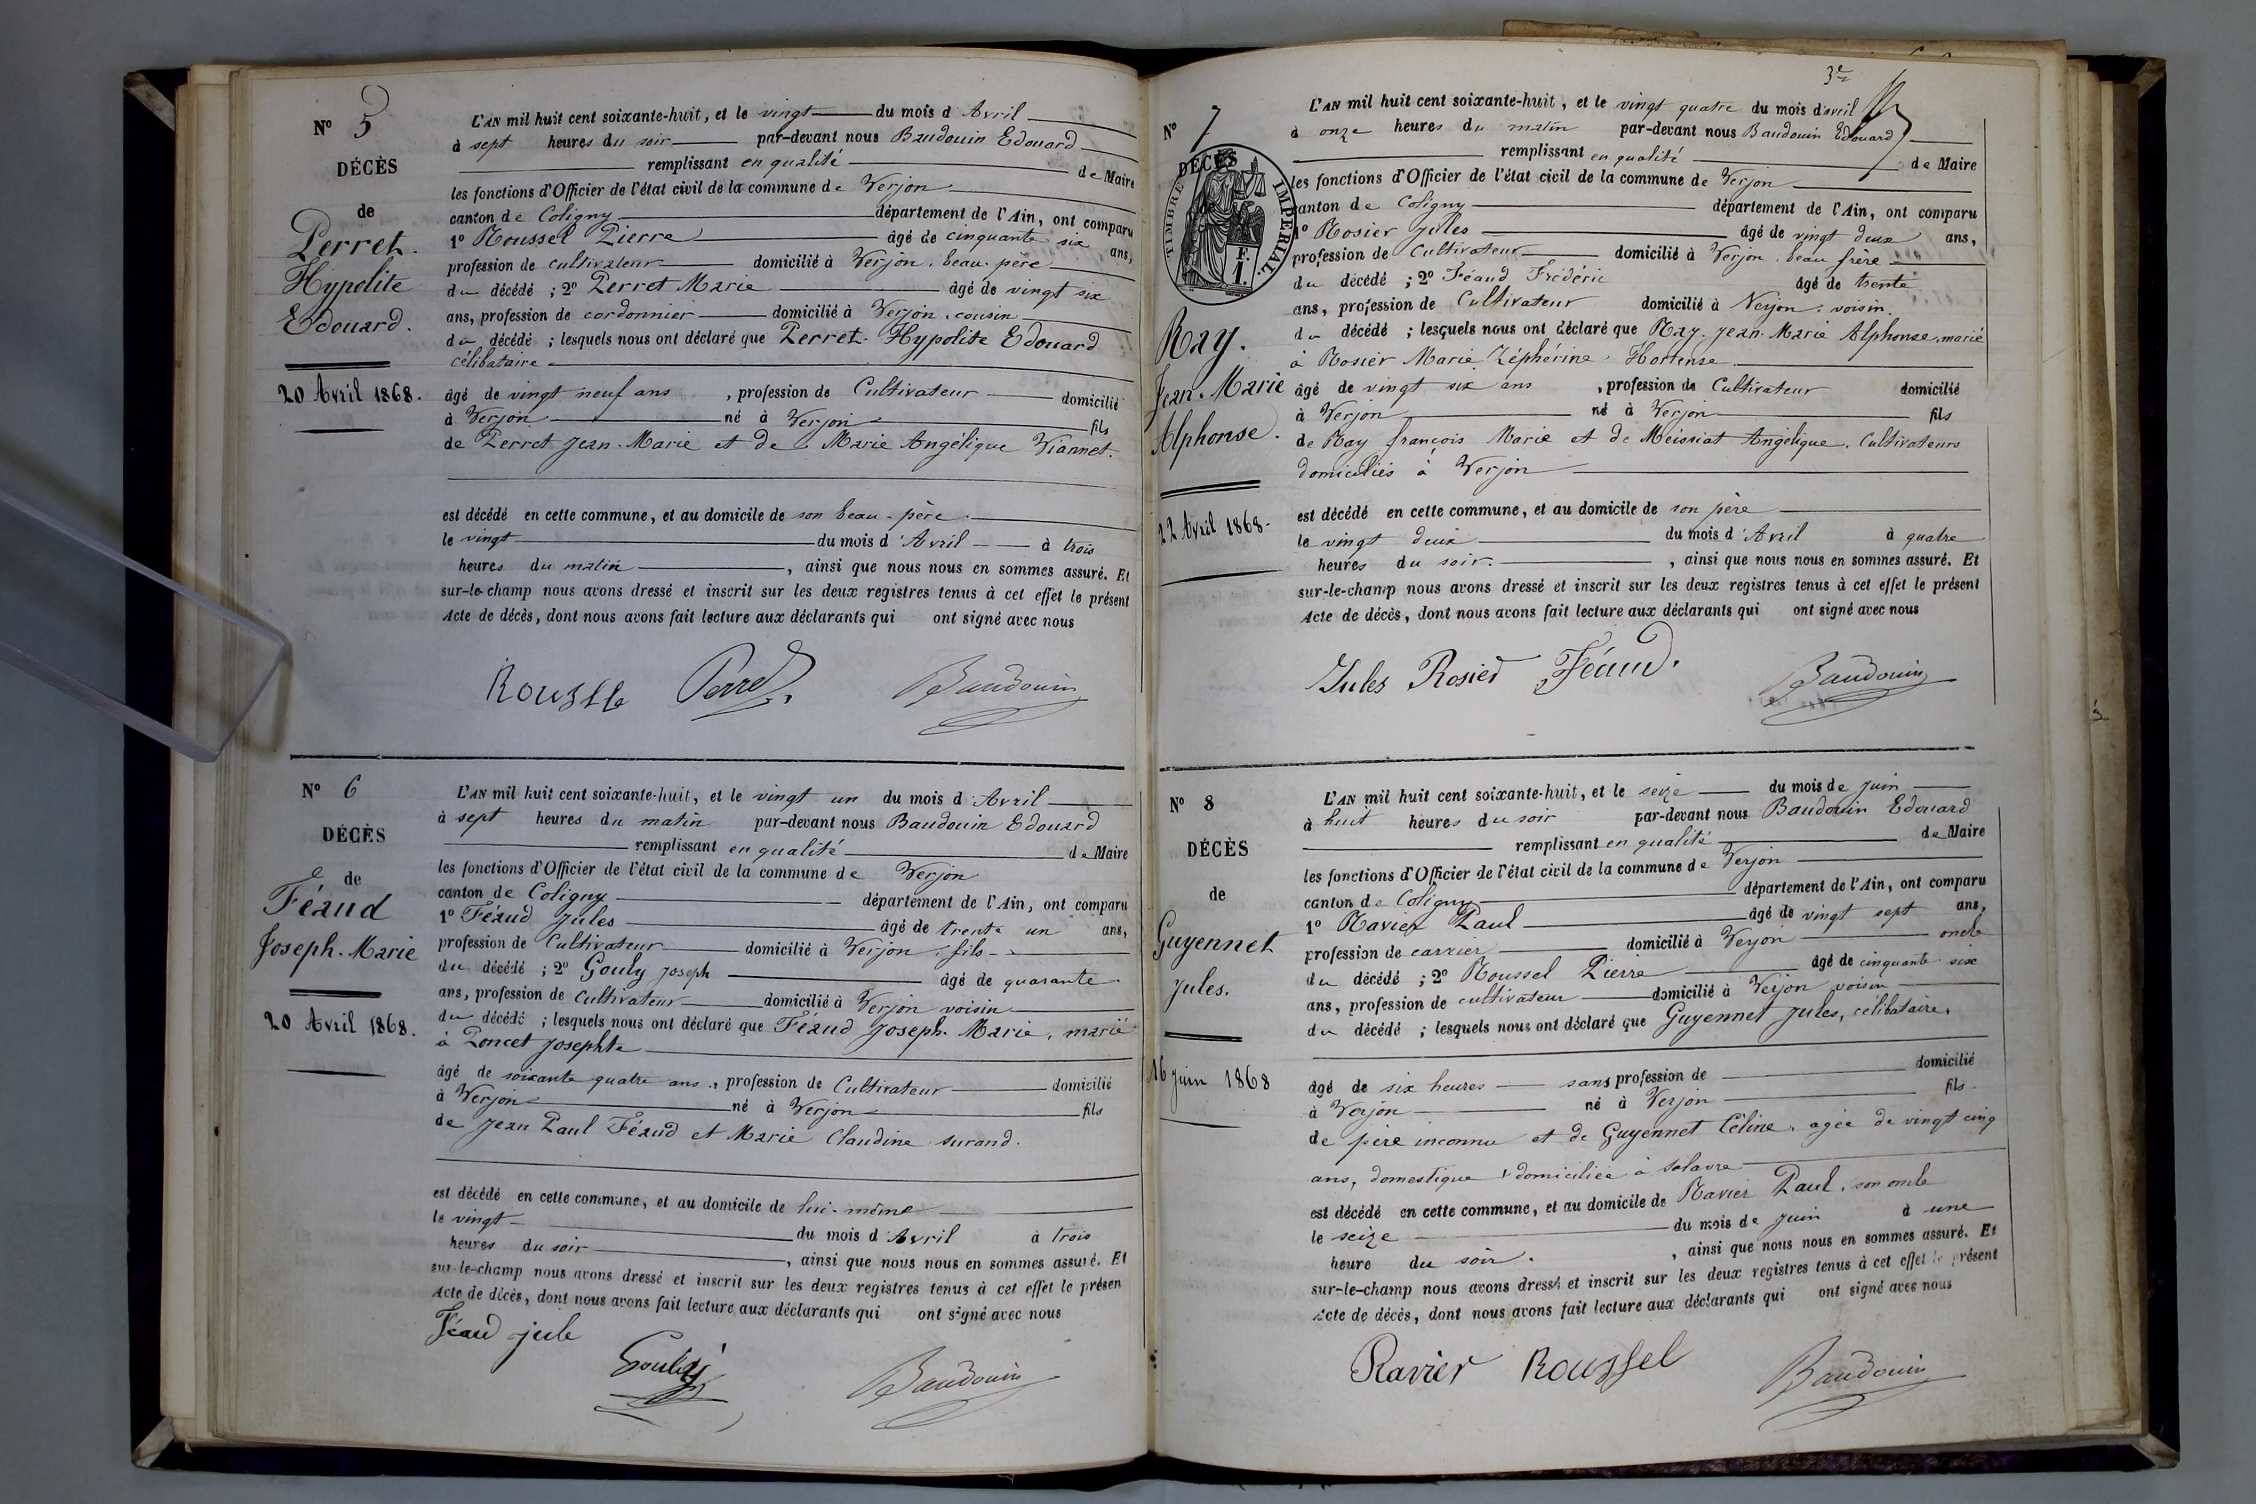 N° 5
DÉCÈS
de
Perret.
Hypolite
Edouard.
20 Avril 1868.
L'AN mil huit cent soixante-huit, et le vingt du mois d'Avril
à sept heures du soir par-devant nous Baudouin Edouard
remplissant en qualité de Maire
les fonctions d'Officier de l'état civil de la commune de Verjon
canton de Coligny département de l'Ain, ont comparu
1° Roussel Pierre âgé de cinquante six ans,
profession de cultivateur domicilié à Verjon, beau-père
du décédé ; 2° Perret Marie âgé de vingt six
ans, profession de cordonnier domicilié à Verjon, cousin
du décédé ; lesquels nous ont déclaré que Perret Hypolite Edouard
célibataire
âgé de vingt neuf ans, profession de Cultivateur domicilié
à Verjon né à Verjon fils
de Perret Jean-Marie et de Marie Angélique Viannet.
est décédé en cette commune, et au domicile de son beau-père
le vingt du mois d'Avril à trois
heures du matin, ainsi que nous nous en sommes assuré. Et
sur-le-champ nous avons dressé et inscrit sur les deux registres tenus à cet effet le présent
Acte de décès, dont nous avons fait lecture aux déclarants qui ont signé avec nous
Perret Baudouin
N° 6
DÉCÈS
de
Féaud
Joseph-Marie
20 Avril 1868.
L'AN mil huit cent soixante-huit, et le vingt un du mois d'Avril
à sept heures du matin par-devant nous Baudouin Edouard
remplissant en qualité de Maire
les fonctions d'Officier de l'état civil de la commune de Verjon
canton de Coligny département de l'Ain, ont comparu
1° Féaud Jules âgé de trente un ans,
profession de Cultivateur domicilié à Verjon, fils
du décédé ; 2° Gouly Joseph âgé de quarante
ans, profession de Cultivateur domicilié à Verjon voisin
du décédé ; lesquels nous ont déclaré que Féaud Joseph-Marie, marié
à Poncet Josephte
âgé de soixante quatre ans, profession de Cultivateur domicilié
à Verjon né à Verjon fils
de Jean Paul Féaud et Marie Claudine Surand.
est décédé en cette commune, et au domicile de lui-même
le vingt du mois d'Avril à trois
heures du soir, ainsi que nous nous en sommes assuré. Et
sur-le-champ nous avons dressé et inscrit sur les deux registres tenus à cet effet le présen
Acte de décès, dont nous avons fait lecture aux déclarants qui ont signé avec nous
Féaud jule
Gouly Baudouin
3e
N° 7
DÉCÈS
TIMBRE IMPERIAL
F.
1.
Ray.
Jean-Marie
Alphonse.
22 Avril 1868.
L'AN mil huit cent soixante-huit, et le vingt quatre du mois d'avril
à onze heures du matin par-devant nous Baudouin Edouard
remplissant en qualité de Maire
les fonctions d'Officier de l'état civil de la commune de Verjon
canton de Coligny département de l'Ain, ont comparu
1° Rosier Jules âgé de vingt deux ans,
profession de Cultivateur domicilié à Verjon, beau frère
du décédé ; 2° Féaud Frédéric âgé de trente
ans, profession de Cultivateur domicilié à Verjon, voisin.
du décédé ; lesquels nous ont déclaré que Ray Jean-Marie Alphonse, marié
à Rosier Marie Zéphérine Hortense
âgé de vingt six ans, profession de Cultivateur domicilié
à Verjon né à Verjon fils
de Ray françois Marie et de Meissiat Angélique, Cultivateurs
domiciliés à Verjon
est décédé en cette commune, et au domicile de son père
le vingt deux du mois d'Avril à quatre
heures du soir, ainsi que nous nous en sommes assuré. Et
sur-le-champ nous avons dressé et inscrit sur les deux registres tenus à cet effet le présent
Acte de décès, dont nous avons fait lecture aux déclarants qui ont signé avec nous
Jules Rosier Féaud. Baudouin
N° 8
DÉCÈS
de
Guyennet
Jules.
16 juin 1868
L'AN mil huit cent soixante-huit, et le seize du mois de juin
à huit heures du soir par-devant nous Baudouin Edouard
remplissant en qualité de Maire
les fonctions d'Officier de l'état civil de la commune de Verjon
canton de Coligny département de l'Ain, ont comparu
1° Ravier Paul âgé de vingt sept ans,
profession de carrier domicilié à Verjon oncle
du décédé ; 2° Roussel Pierre âgé de cinquante six
ans, profession de cultivateur domicilié à Verjon voisin
du décédé ; lesquels nous ont déclaré que Guyennet Jules, célibataire,
âgé de six heures sans profession de domicilié
à Verjon né à Verjon fils
de père inconnu et de Guyennet Céline, agée de vingt cinq
ans, domestique, domiciliée à Salavre
est décédé en cette commune, et au domicile de Ravier Paul, son oncle
le seize du mois de juin à une
heure du soir, ainsi que nous nous en sommes assuré. Et
sur-le-champ nous avons dressé et inscrit sur les deux registres tenus à cet effet le présent
Acte de décès, dont nous avons fait lecture aux déclarants qui ont signé avec nous
Ravier Roussel Baudouin